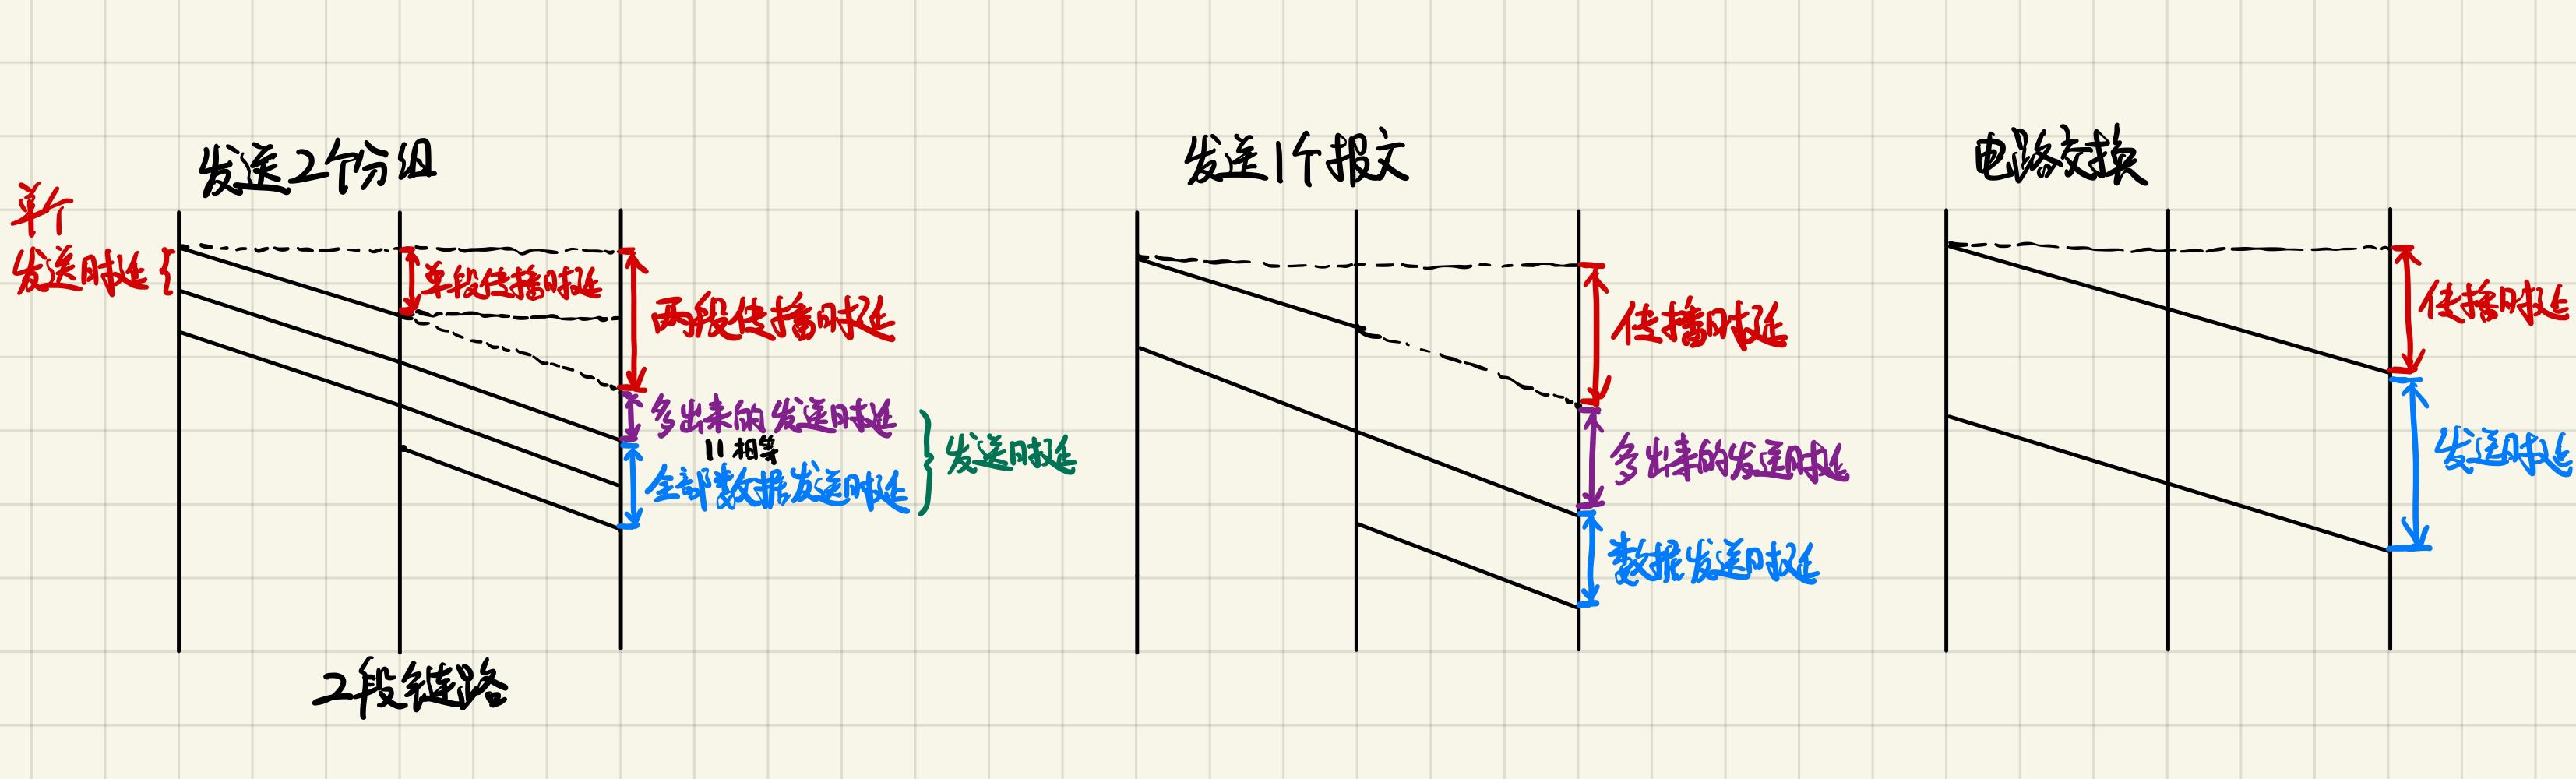 发送2个分组
单个
发送时延
单段传播时延
两段传播时延
多出来的发送时延
|| 相等
全部数据发送时延
发送时延
2段链路
发送1个报文
传播时延
多出来的发送时延
数据发送时延
电路交换
传播时延
发送时延